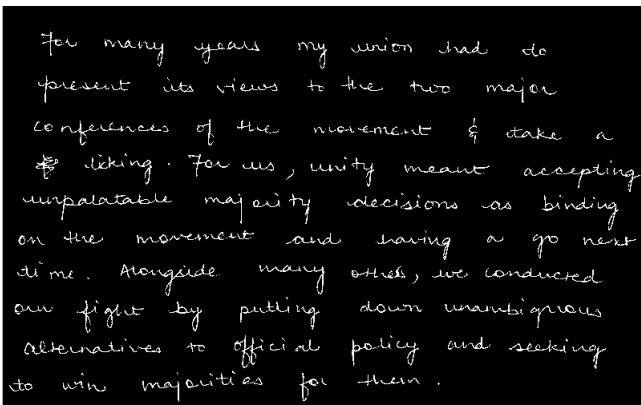 For many years my union had to
present its views to the two major
conferences of the movement & take a
liking. For us, unity meant accepting
unpalatable majority decisions as binding
on the movement and having a go next
time. Alongside many others, we conducted
our fight by putting down unambiguous
alternatives to official policy and seeking
to win majorities for them.